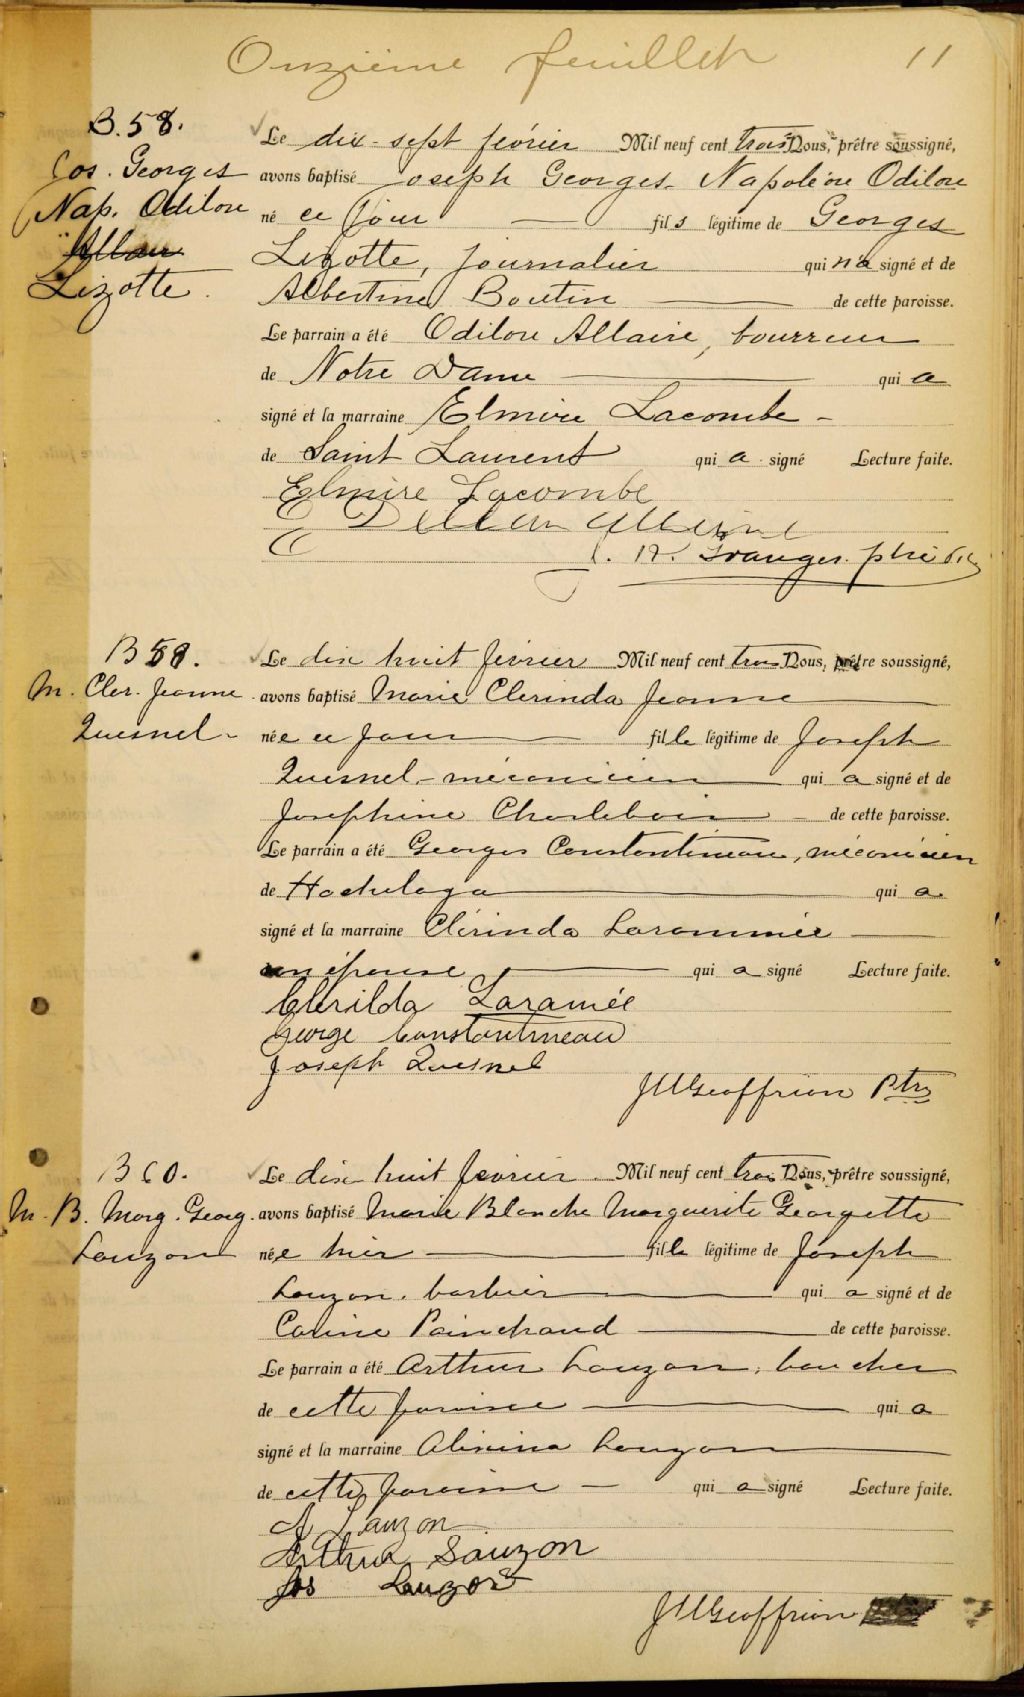 Onzième feuillet 11
B. 58.
Jos. Georges
Nap. Odilon
Allaire
Lizotte.
Le dix-sept février Mil neuf cent trois Nous, prêtre soussigné,
avons baptisé Joseph Georges Napoléon Odilon
né ce jour fils légitime de Georges
Lizotte, journalier qui n'a signé et de
Albertine Boutin de cette paroisse.
Le parrain a été Odilon Allaire, bourreur
de Notre Dame qui a
signé et la marraine Elmire Lacombe -
de Saint Laurent qui a signé Lecture faite.
Elmire Lacombe
ptre
B 59.
M. Cler. Jeanne
Quesnel -
Le dix huit février Mil neuf cent trois Nous, prêtre soussigné,
avons baptisé Marie Clerinda Jeanne
née ce jour fille légitime de Joseph
Quesnel - mécanicien qui a signé et de
Josephine Charlebois de cette paroisse.
Le parrain a été Georges Constantineau, mécanicien
de Hochelaga qui a
signé et la marraine Clérinda Larammée
son épouse qui a signé Lecture faite.
Clerilda Laramée
George Constantineau
Joseph Quesnel
JU Geoffrion Ptre
B 60.
M. B. Marg. Georg.
Lauzon
Le dix huit fevrier Mil neuf cent trois Nous, prêtre soussigné,
avons baptisé Marie Blanche Marguerite Georgette
née hier fille légitime de Joseph
Lauzon, barbier qui a signé et de
Corine Painchaud de cette paroisse.
Le parrain a été Arthur Lauzon, boucher
de cette paroisse qui a
signé et la marraine Lauzon
de cette paroisse qui a signé Lecture faite.
A Lauzon
Arthur Lauzon
Jos Lauzon
JU Geoffrion